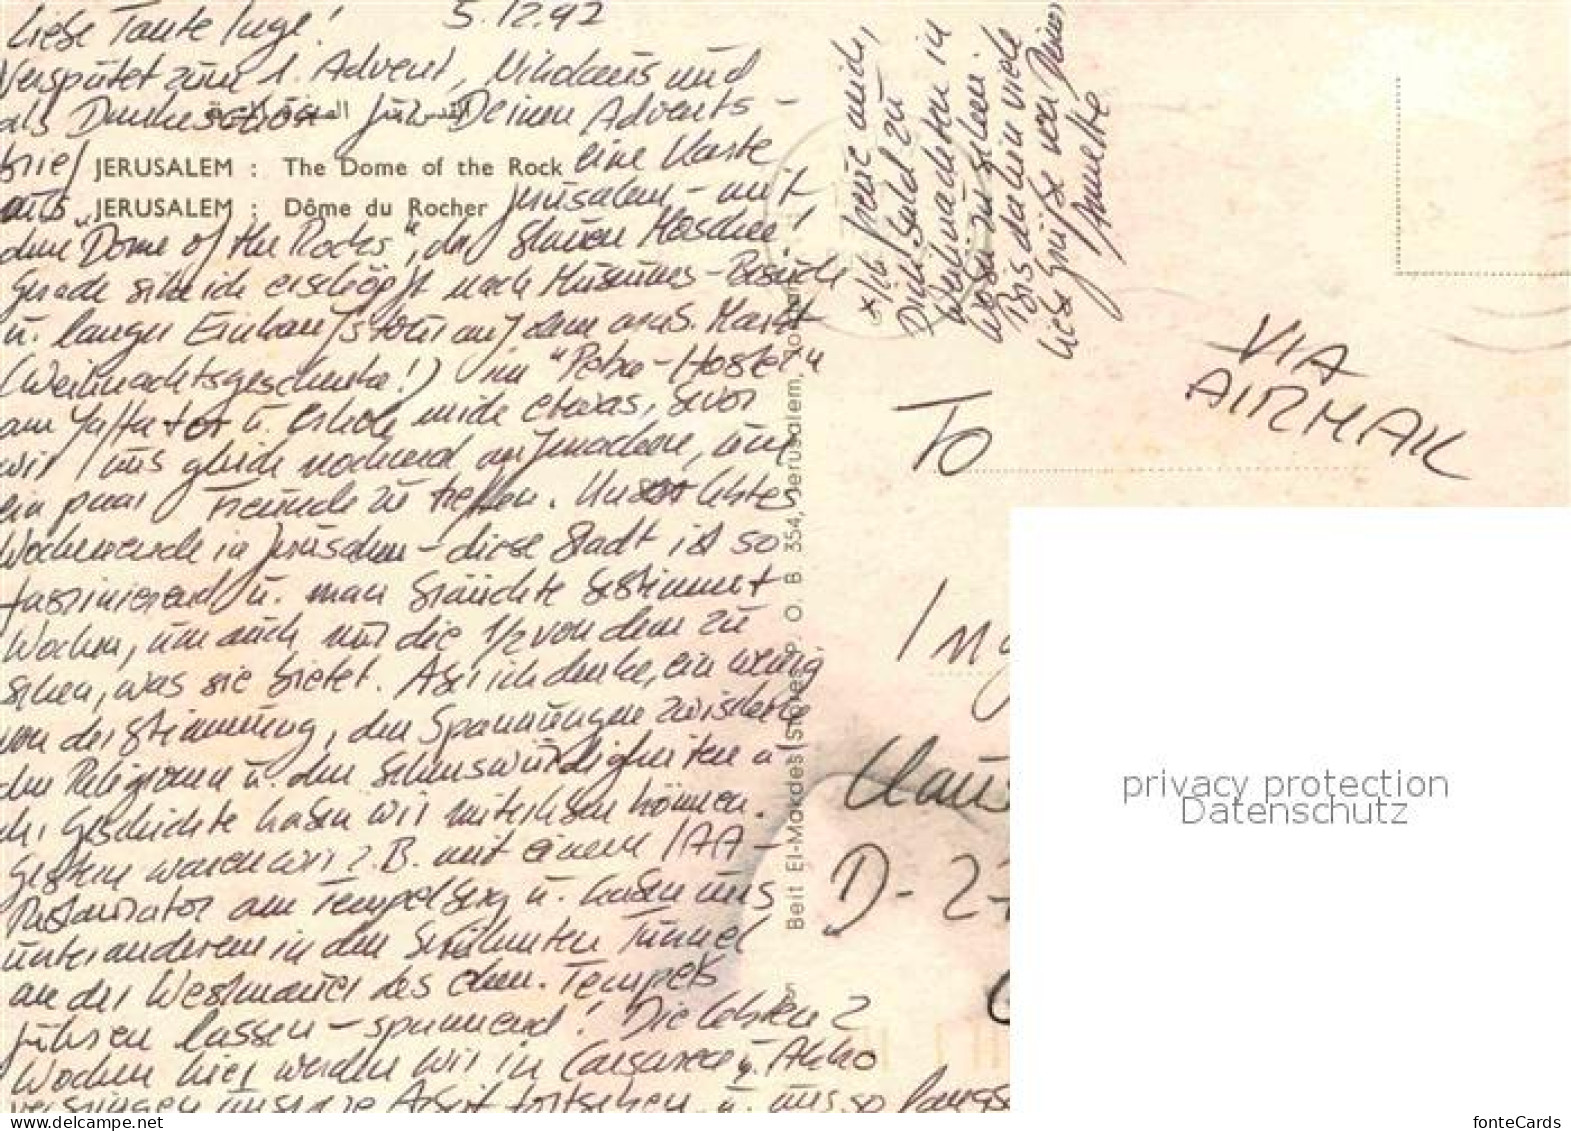 Liebe Tante Inge! 5.12.92
Verspätet zum 1. Advent, Nikolaus und
als Dankeschön für Deinen Advents-
brief eine Karte
JERUSALEM : The Dome of the Rock
aus Jerusalem - mit
JERUSALEM : Dôme du Rocher
dem "Dome of the Rocks", der blauen Moschee!
Gerade sitze ich erschöpft nach Museums-Besuch
u. langer Einkaufstour auf dem arab. Markt
(Weihnachtsgeschenke!) im "Petra-Hostel"
am Jaffator u. erhole mich etwas, bevor
wir uns gleich nochmal aufmachen, um
ein paar Freunde zu treffen. Unser letztes
Wochenende in Jerusalem - diese Stadt ist so
faszinierend u. man bräuchte bestimmt
Wochen, um auch nur die 1/2 von dem zu
sehen, was sie bietet. Aber ich denke, ein wenig
von der Stimmung, den Spannungen zwischen
den Religionen u. den Sehenswürdigkeiten u.
der Geschichte haben wir miterleben können.
Gestern waren wir z.B. mit einem IAA-
Restaurator am Tempelberg u. haben uns
unter anderem in den berühmten Tunnel
an der Westmauer des ehem. Tempels
führen lassen - spannend! Die letzten 2
Wochen hier werden wir in Caesarea u. Akko
verbringen unsere Arbeit fortsetzen u. uns so langs
* Ich freue mich,
Dich bald zu
Weihnachten in
wiederzusehen.
Bis dahin viele
liebe Grüße von Deiner
Annette
VIA
AIRMAIL
To
Ing
Claus
D-27
Beit El-Makdes Stores P. O. B 354, Jerusalem, Jordan
privacy protection
Datenschutz
fonteCards